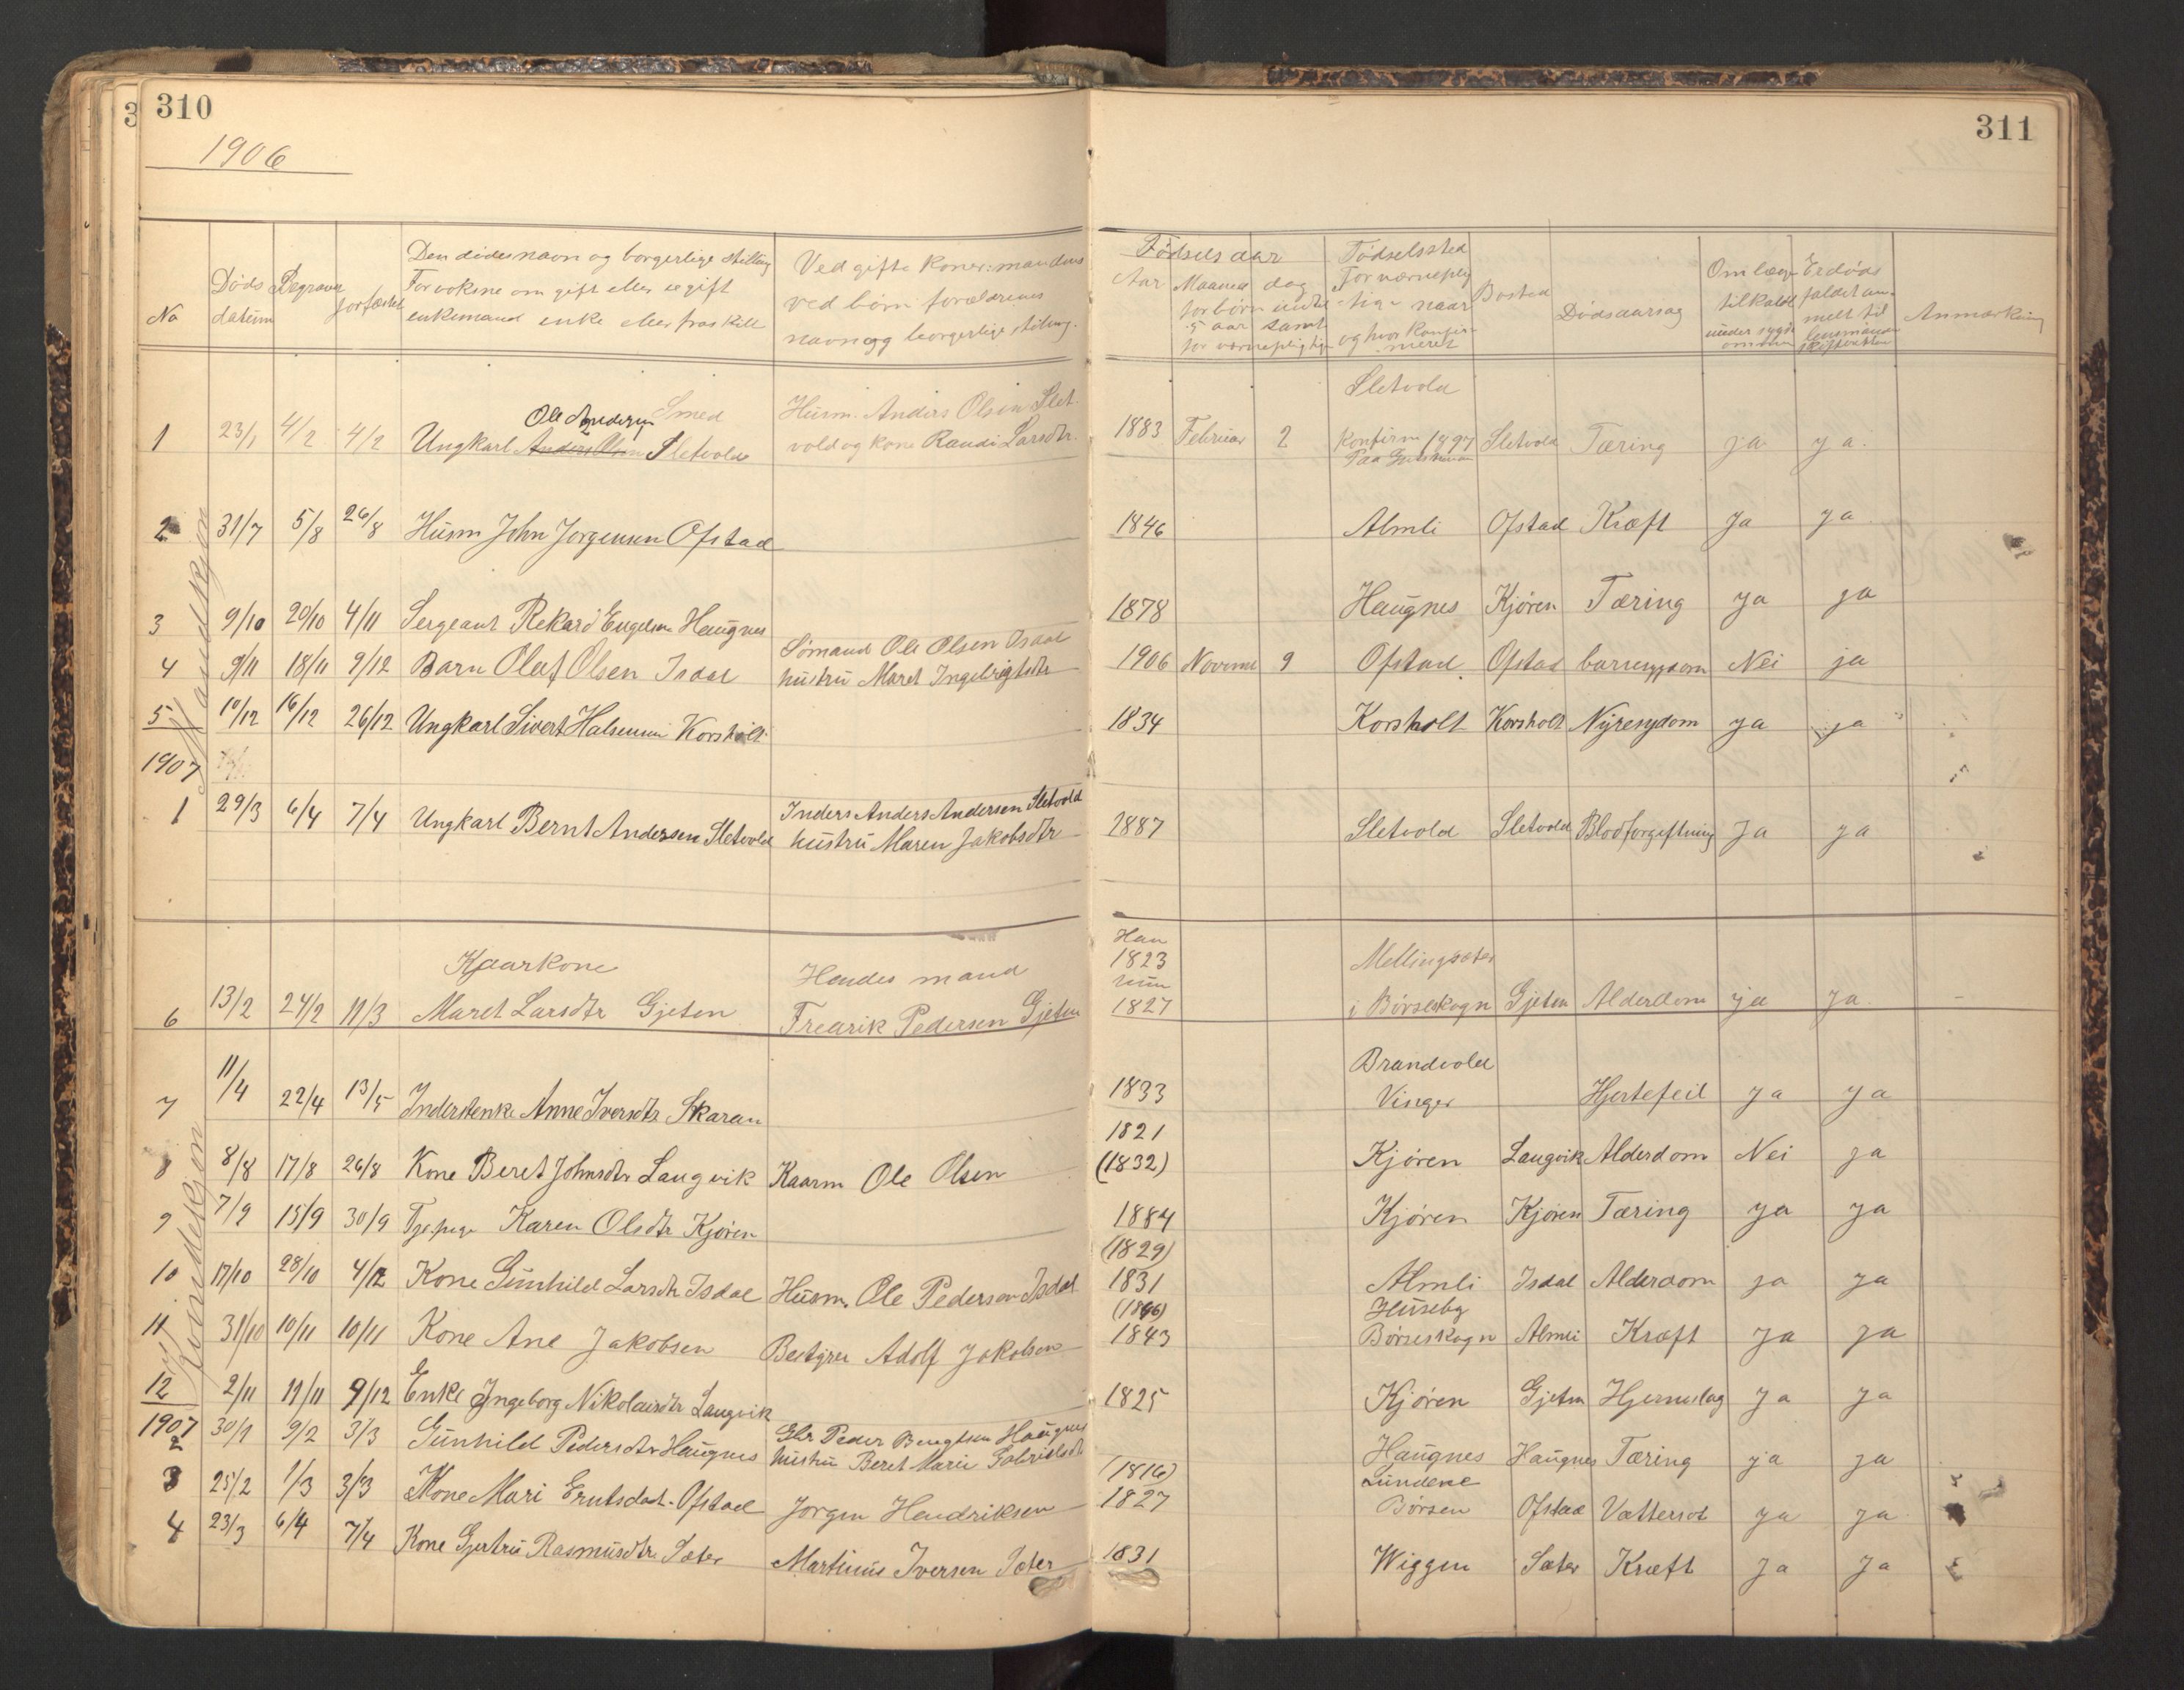 310
1906
No
Døds datum
Begravet
forfæstet
Den dødes navn og borgerlige stilling
For voksne om gift eller ugift
enkemand enke eller fraskilt
Ved gifte koner: mandens
ved børn forældrenes
navn og borgerlige stilling.
Mandkjøn
1 23/1 4/2 4/2 Ole Andersen Smed
Ungkarl Anders Olsen Sletvold
Husm. Anders Olsen Slet-
vold og kone Randi Larsdtr.
2 31/7 5/8 26/8 Husm John Jørgensen Ofstad
3 9/10 20/10 4/11 Sergeant Rekard Engelsen Haugnes
4 9/11 18/11 9/12 Barn Olaf Olsen Isdal
Sømand Ole Olsen Isdal
hustru Maret Ingebrigtsdtr
5 10/12 16/12 26/12 Ungkarl Sivert Halsensen Korsholt
1907
1 29/3 6/4 7/4 Ungkarl Bernt Andersen Sletvold
Inders Anders Andersen Sletvold
hustru Maren Jakobsdtr
Kvindekjøn
6 13/2 24/2 11/3 Kaarkone
Maret Larsdtr Gjeten
Hendes mand
Fredrik Pedersen Gjeten
7 11/4 22/4 13/5 Inderstenke Anne Iversdtr Skaran
8 8/8 17/8 26/8 Kone Beret Johnsdtr Langvik Kaarm Ole Olsen
9 7/9 15/9 30/9 Tjepige Karen Olsdtr Kjøren
10 17/10 28/10 4/12 Kone Gunhild Larsdtr Isdal Husm. Ole Pedersen Isdal
11 31/10 10/11 10/11 Kone Ane Jakobsen Bestyrer Adolf Jakobsen
12 2/11 11/11 9/12 Enke Ingeborg Nikolaisdtr Langvik
1907
2 30/1 9/2 3/3 Gunhild Pedersdtr Haugnes
Peder Bengtsen Haugnes
hustru Beret Marie Gabrielsdtr
3 25/2 1/3 3/3 Kone Mari Erntsdat. Ofstad Jørgen Hendriksen
4 23/3 6/4 7/4 Kone Gjertru Rasmusdtr. Sæter Martinus Iversen Sæter
311
Fødselsaar
Aar
Maaned dag
for børn under
5 aar samt
for værnepligtige
Fødselssted
For værneplig-
tige naar
og hvor konfir-
meret
Bosted
Dødsaarsag
Om læge
tilkaldt
under syg-
dommen
Er døds-
faldet an-
meldt til
lensmand
skifteretten
Anmærkning
Sletvold
1883 Februar 2 Konfirm 1897 Sletvold Tæring ja ja.
1846 Almli Ofstad Kræft Ja ja
1878 Haugnes Kjøren Tæring ja ja
1906 Novemb 9 Ofstad Ofstad barnesygdom Nei ja
1834 Korsholt Korsholt Nyresygdom ja ja
1887 Sletvold Sletvold Blodforgiftning Ja ja
Han
1823
hun
1827
Mellingsæter
i Børseskogn Gjeten Alderdom ja Ja.
1833 Brandvold
Vinger Hjertefeil ja ja
1821
(1832) Kjøren Langvik Alderdom Nei ja
1884 Kjøren Kjøren Tæring ja ja
(1829)
1831 Almli Isdal Alderdom ja ja
(1846)
1843 Huseby
Børseskogn Almli Kræft Ja ja
1825 Kjøren Gjeten Hjerneslag Ja Ja
Haugnes Haugnes Tæring ja ja
(1816)
1827 Lundene
Børsen Ofstad Vattersot ja ja
1831 Wiggen Sæter Kræft Ja Ja